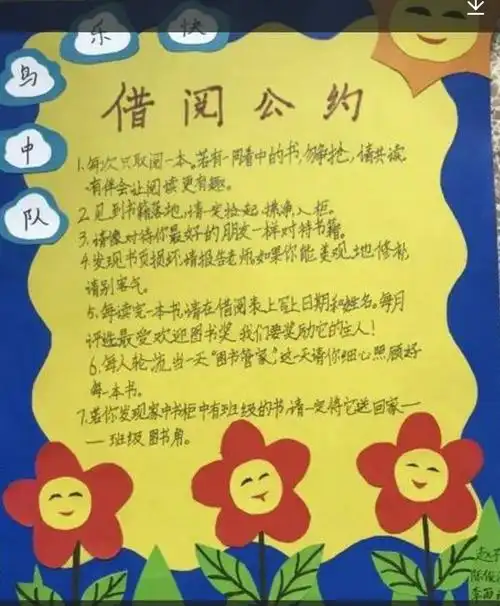 快乐鸟中队
借阅公约
1.每次只取阅一本。若有一同看中的书,勿争抢,请共读。
有伴会让阅读更有趣。
2.见到书籍落地,请一定捡起,擦净入柜。
3.请像对待你最好的朋友一样对待书籍。
4.发现书页损坏请报告老师,如果你能美观地修补
请别客气。
5.每读完一本书,请在借阅表上写上日期和姓名。每月
评选最受欢迎图书奖,我们要奖励它的主人!
6.每人轮流当一天“图书管家”,这一天请你细心照顾好
每一本书。
7.若你发现家中书柜中有班级的书,请一定将它送回家一
一一班级图书角。